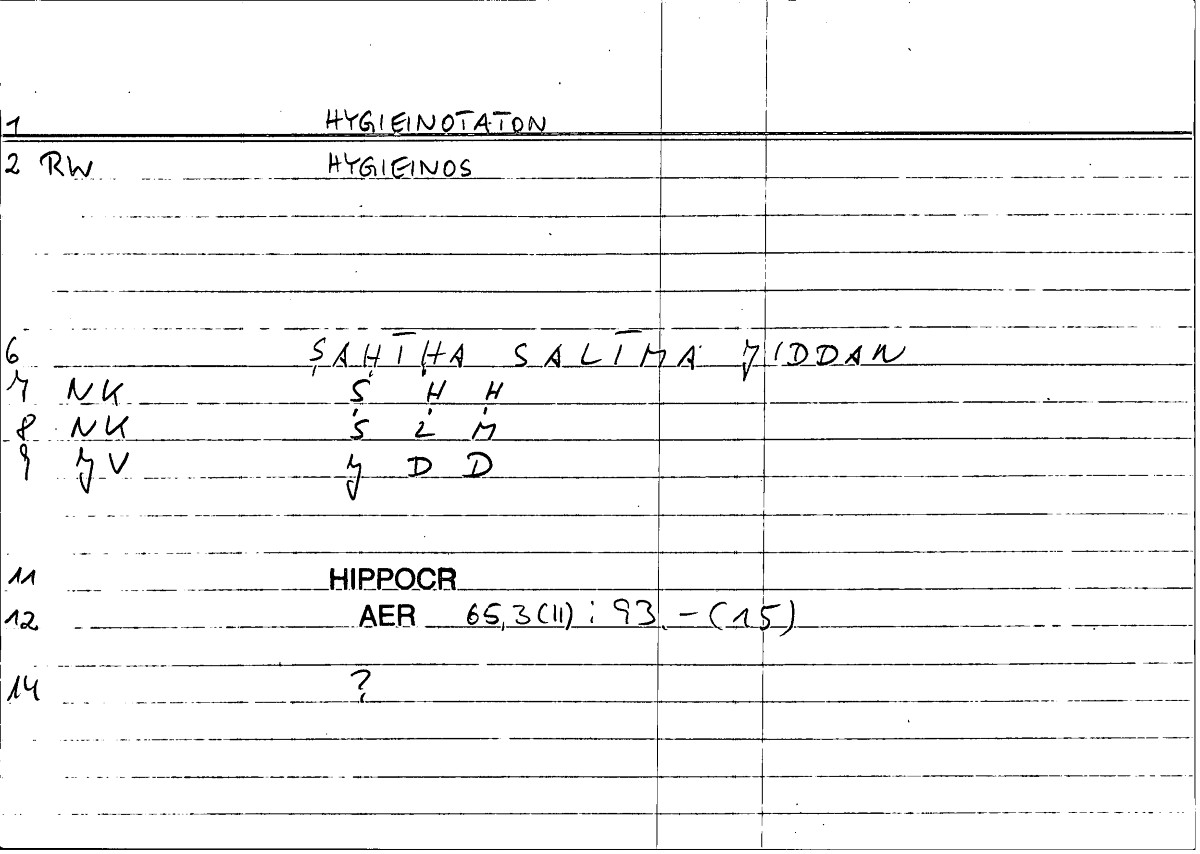 1 HYGIEINOTATON
2 RW HYGIEINOS
6 ṢAḤĪḤA SALĪMA JIDDAN
7 NK Ṣ Ḥ Ḥ
8 NK S L M
9 JV J D D
11 HIPPOCR
12 AER 65,3(11) : 93 - (15)
14 ?